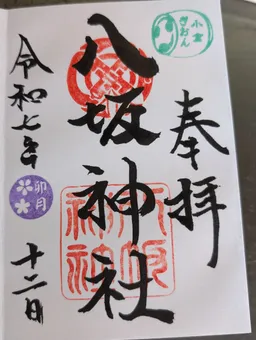 奉拝
八坂神社
令和七年
卯月
十二日
小倉
ぎおん
八坂神社